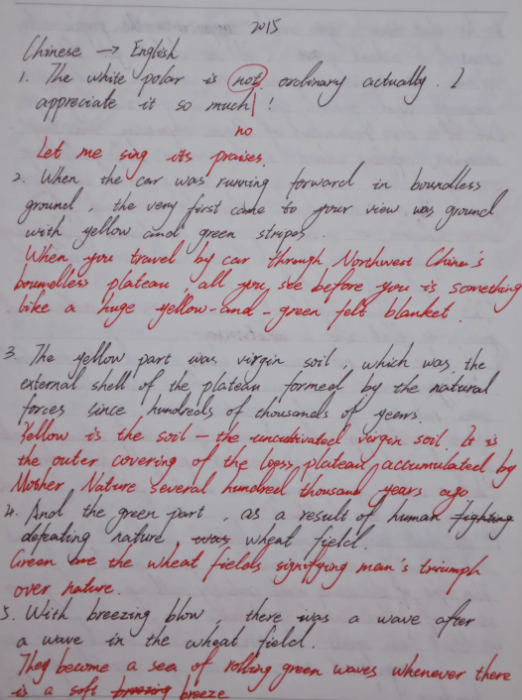 2015
Chinese → English
1. The white polar is not ordinary actually. I
appreciate it so much!
no
Let me sing its praises.
2. When the car was running forward in boundless
ground, the very first came to your view was ground
with yellow and green stripes.
When you travel by car through Northwest China's
boundless plateau, all you see before you is something
like a huge yellow-and-green felt blanket.
3. The yellow part was virgin soil, which was the
external shell of the plateau formed by the natural
forces since hundreds of thousands of years.
Yellow is the soil - the uncultivated virgin soil. It is
the outer covering of the loess plateau accumulated by
Mother Nature several hundred thousand years ago
4. And the green part, as a result of human fighting
defeating nature, was wheat field.
Green are the wheat fields signifying man's triumph
over nature.
5. With breezing blow, there was a wave after
a wave in the wheat field.
They become a sea of rolling green waves whenever there
is a soft breezing breeze